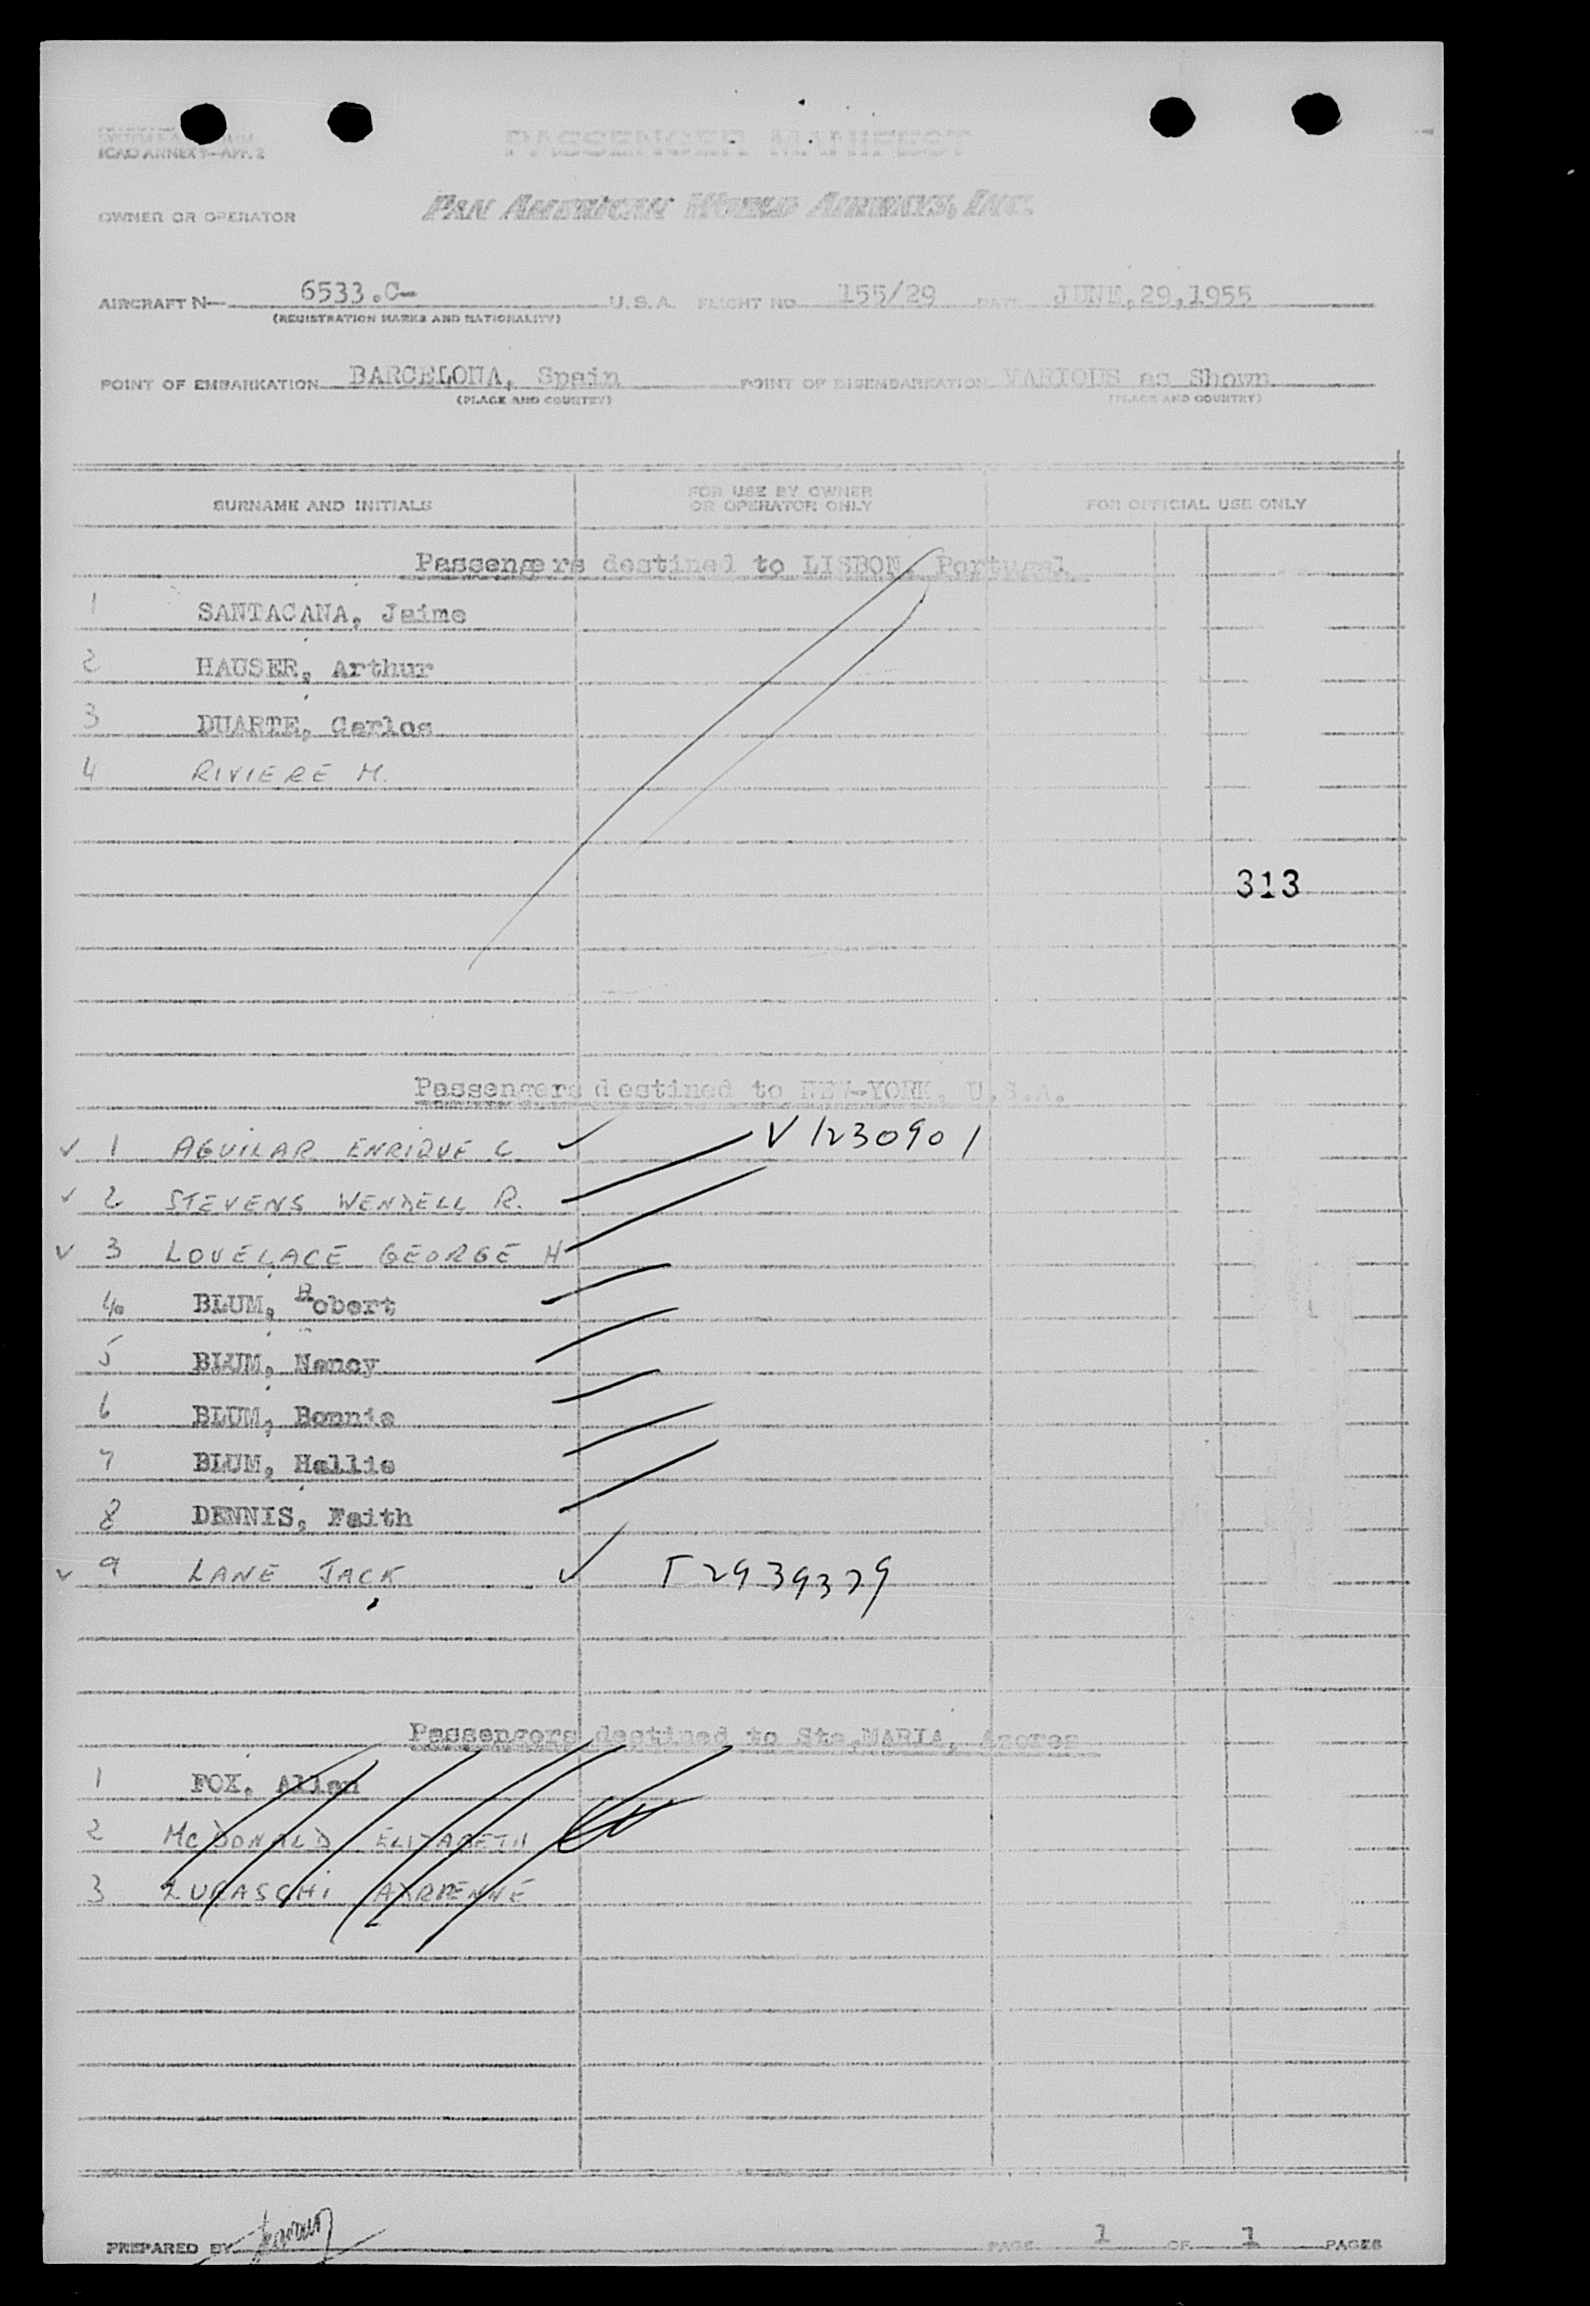 ICAO ANNEX 9—APP. 2
PASSENGER MANIFEST
OWNER OR OPERATOR PAN AMERICAN WORLD AIRWAYS, INC.
AIRCRAFT N— 6533.C- U.S.A. FLIGHT NO 155/29 DATE JUNE,29,1955
(REGISTRATION MARKS AND NATIONALITY)
POINT OF EMBARKATION BARCELONA, Spain POINT OF DISEMBARKATION VARIOUS as Shown
(PLACE AND COUNTRY) (PLACE AND COUNTRY)
SURNAME AND INITIALS FOR USE BY OWNER OR OPERATOR ONLY FOR OFFICIAL USE ONLY
Passengers destined to LISBON, Portugal
1 SANTACANA, Jaime
2 HAUSER, Arthur
3 DUARTE, Carlos
4 RIVIERE M.
313
Passengers destined to NEW-YORK, U.S.A.
1 AGUILAR ENRIQUE C V1230901
2 STEVENS WENDELL R.
3 LOVELACE GEORGE H
4 BLUM, Robert
5 BLUM, Nancy
6 BLUM, Bonnie
7 BLUM, Hallie
8 DENNIS, Faith
9 LANE JACK T2939379
Passengers destined to Sta,MARIA, Azores
1 FOX, Allan
2 McDONALD ELIZABETH
3 LURASCHI ADRIENNE
PREPARED BY PAGE 1 OF 1 PAGES